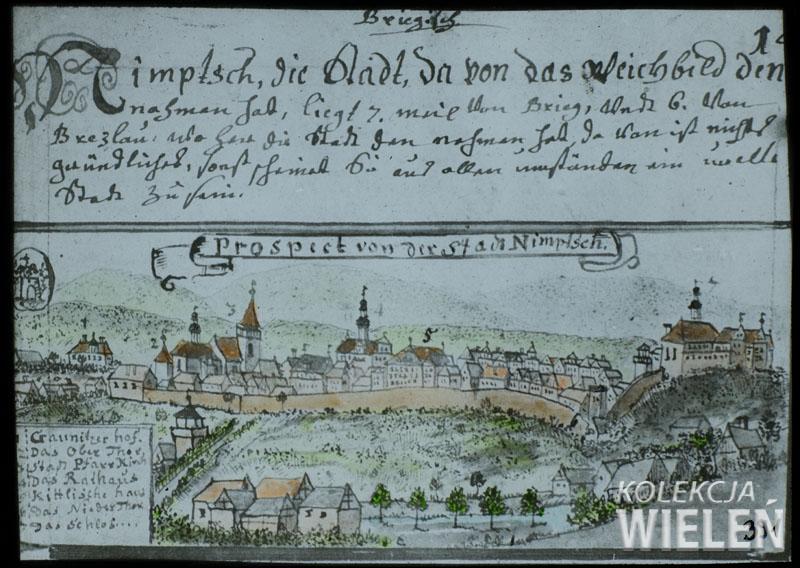 Briegisch
14
Nimptsch, die Stadt, da von das Weichbild den
nahmen hat, liegt 7. meil von Brieg, undt 6. von
Breslau: wo her die Stadt den nahmen hat, da von ist nichts
gründliches, sonst scheinet Sie aus allen umständen ein uralte
Stadt zu sein.
Prospect von der Stadt Nimptsch.
1 2 3 4 5
Craunitzer hof.
Das Ober Thor
Stadt Pfarr Kirch
Das Rathaus
Kittlische haus
Das Nieder Thor
Das Schlos....
KOLEKCJA
WIELEŃ